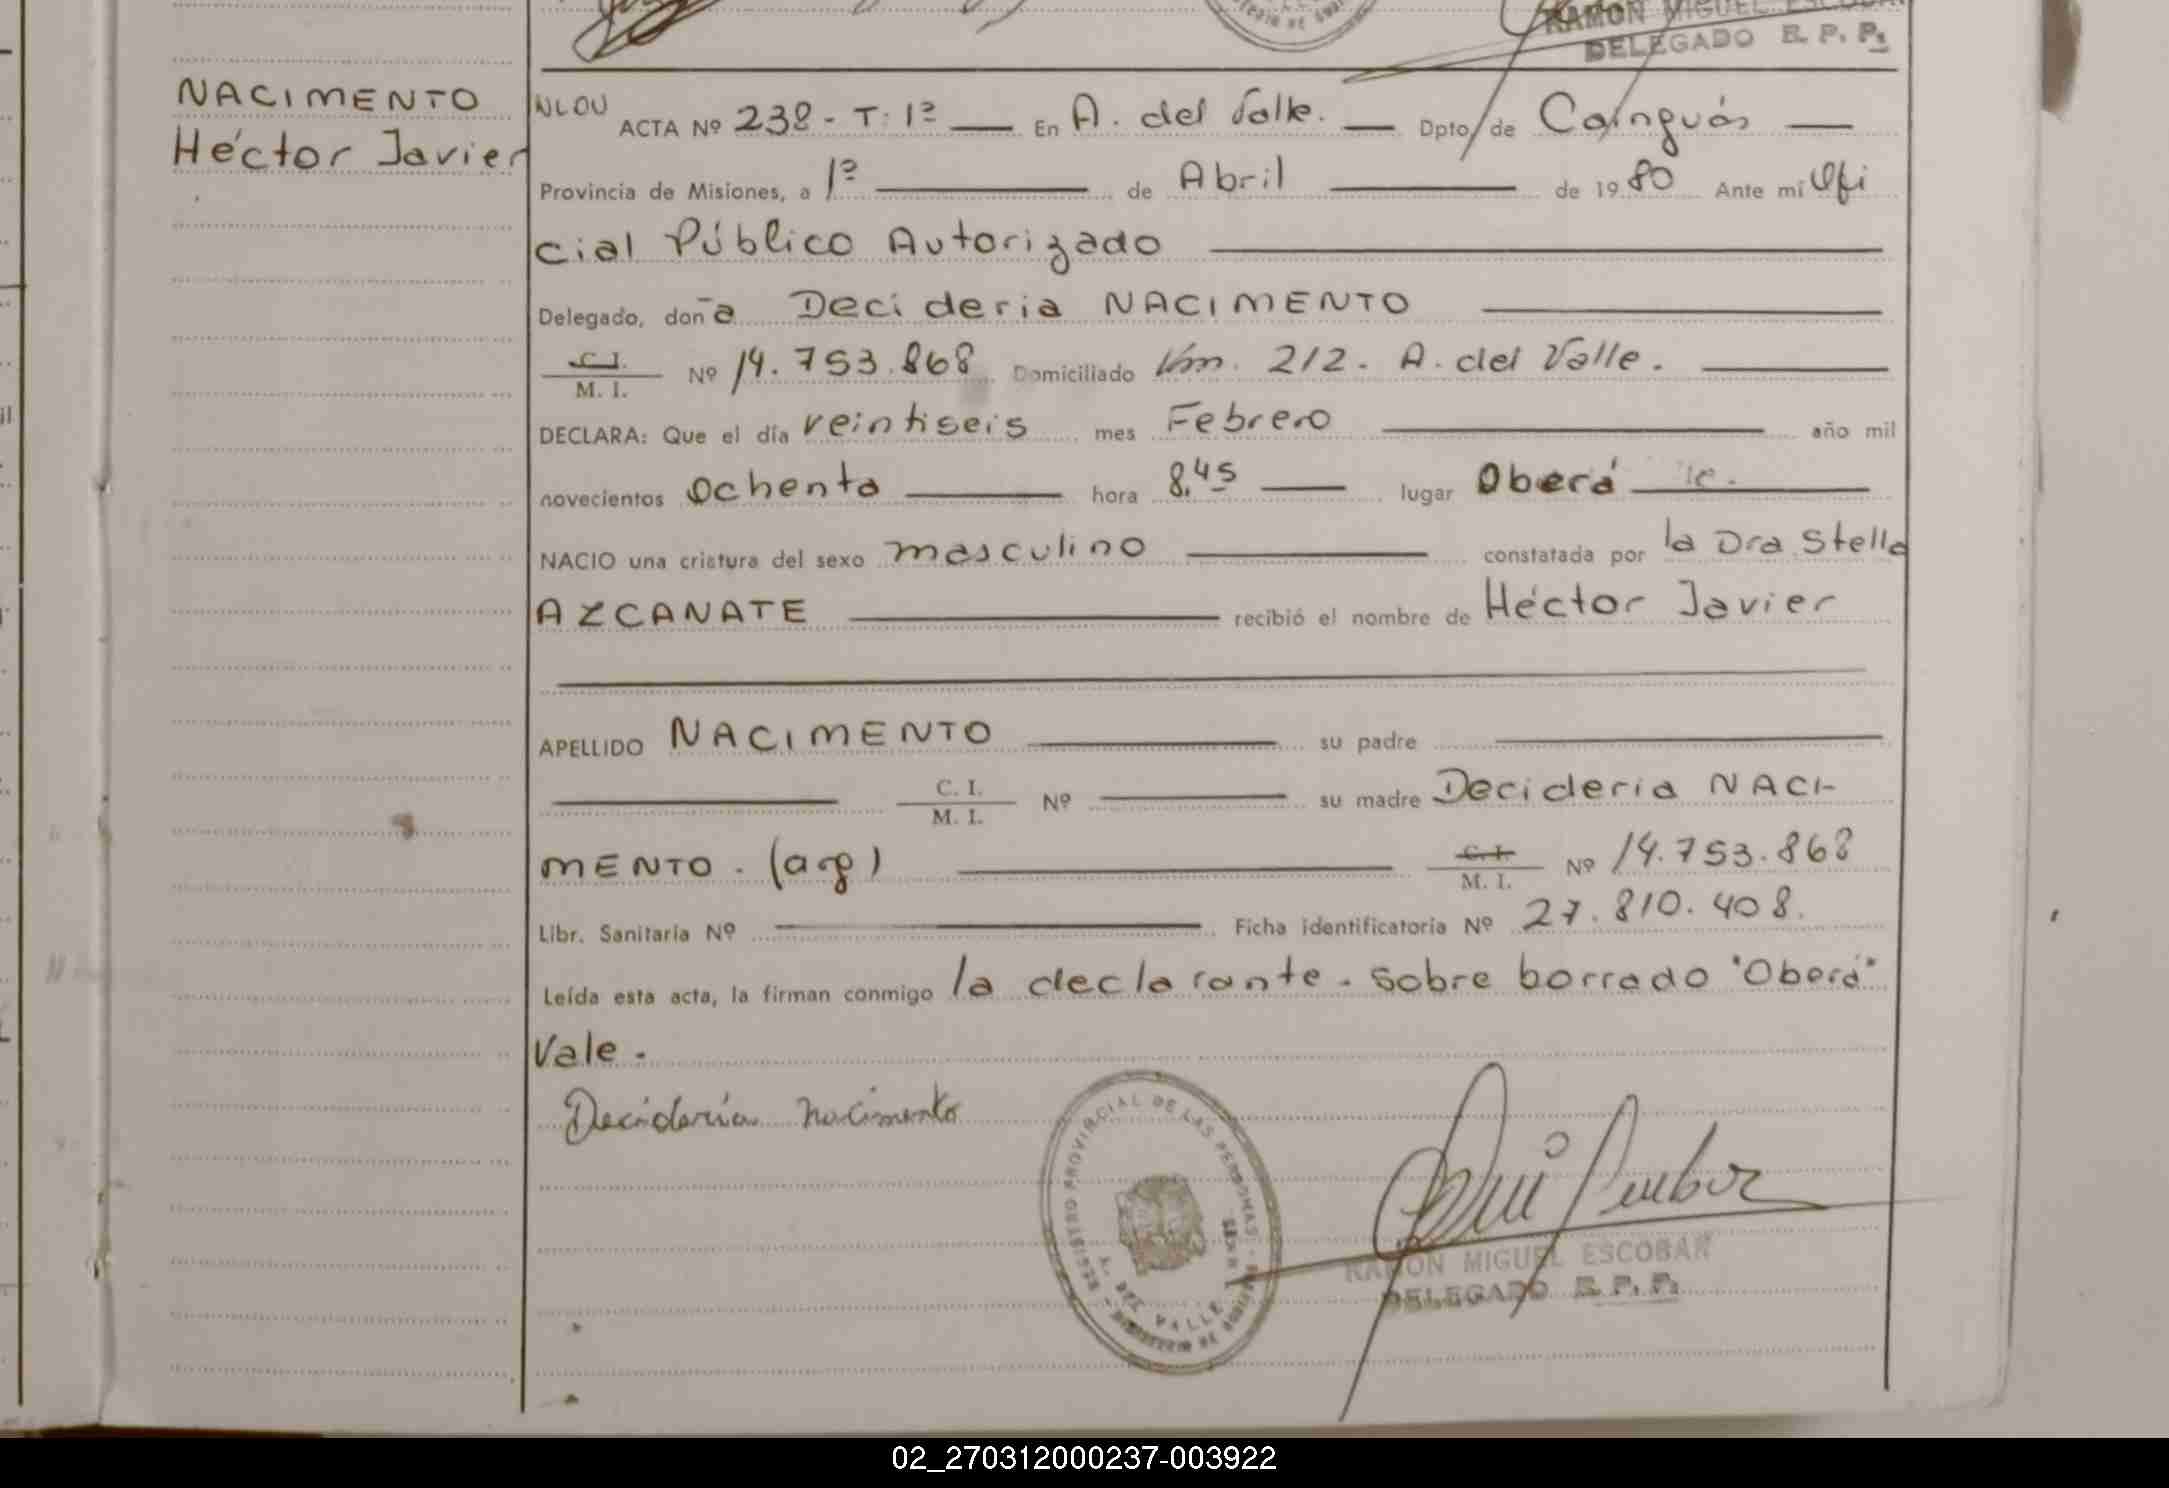 RAMON MIGUEL ESCOBAR
DELEGADO R. P. P.
NACIMENTO
Héctor Javier
NLOU ACTA Nº 238 - T: 1º En A. del Valle. Dpto. de Cainguás
Provincia de Misiones, a 1º de Abril de 1980 Ante mi Ofi
cial Público Autorizado
Delegado, doña Decideria NACIMENTO
C. I.
M. I. Nº 14.753.868 Domiciliado Km. 212. A. del Valle.
DECLARA: Que el día veintiseis mes Febrero año mil
novecientos Ochenta hora 8,45 lugar Oberá
NACIO una criatura del sexo masculino constatada por la Dra Stella
AZCANATE recibió el nombre de Héctor Javier
APELLIDO NACIMENTO su padre
C. I.
M. I. Nº su madre Decideria NACI-
MENTO. (arg) C. I.
M. I. Nº 14.753.868
Libr. Sanitaria Nº Ficha identificatoria Nº 27.810.408.
Leída esta acta, la firman conmigo la declarante. sobre borrado "Oberá"
Vale.
Decideria nacimento
REGISTRO PROVINCIAL DE LAS PERSONAS
A. DEL VALLE
RAMON MIGUEL ESCOBAR
DELEGADO R. P. P.
02_270312000237-003922